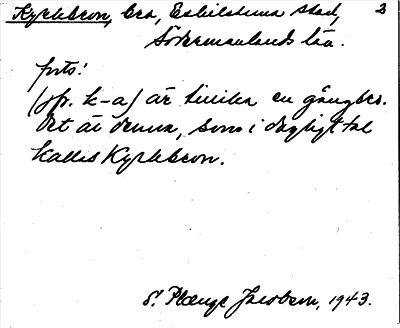 Kyrkbron, bro, Eskilstuna stad, 2
Södermanlands län.
forts:
(jfr. k-a) är tillika en gångbro.
Det är denna, som i dagligt tal
kallas Kyrkbron.
S. Plænge Jacobson, 1943.